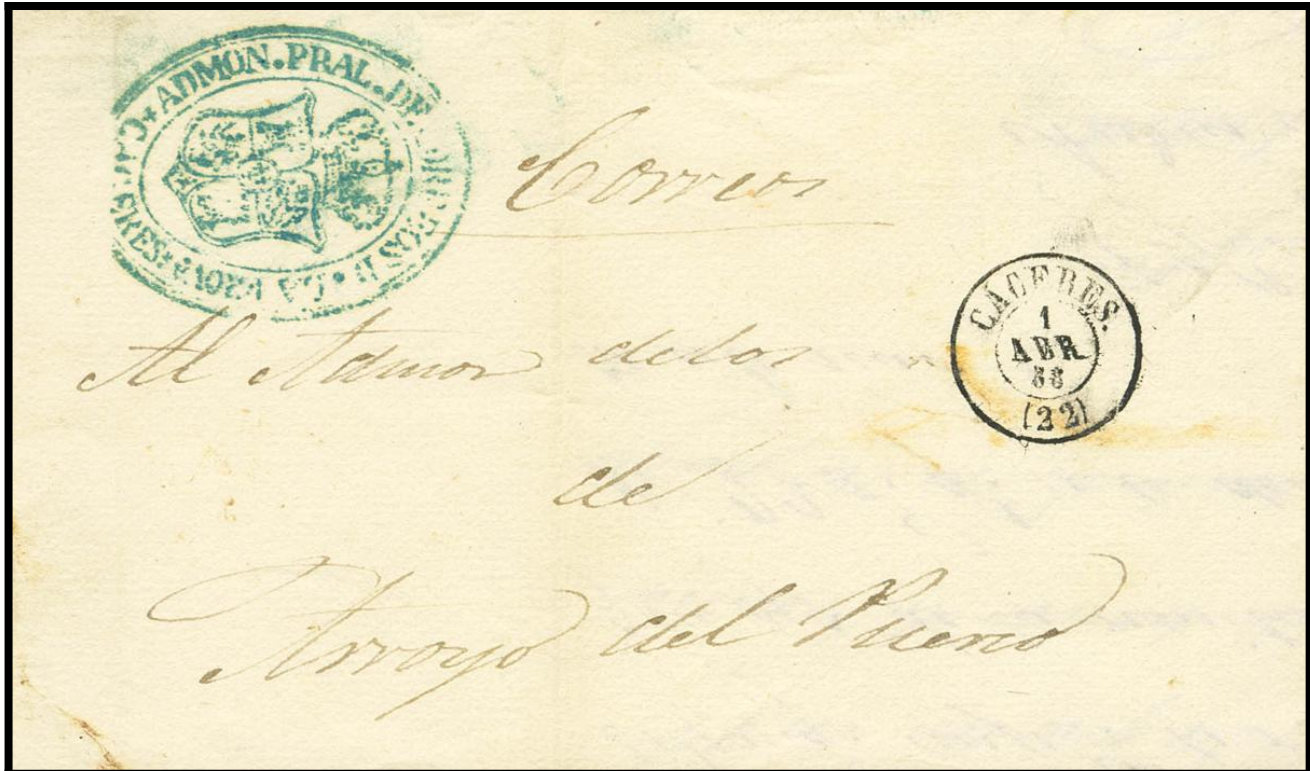 ADMON. PRAL. DE CORREOS DE LA PROVA DE CACERES
Correos
CACERES.
1
ABR
(22)
Al Admor de los
de
Arroyo del Puerco